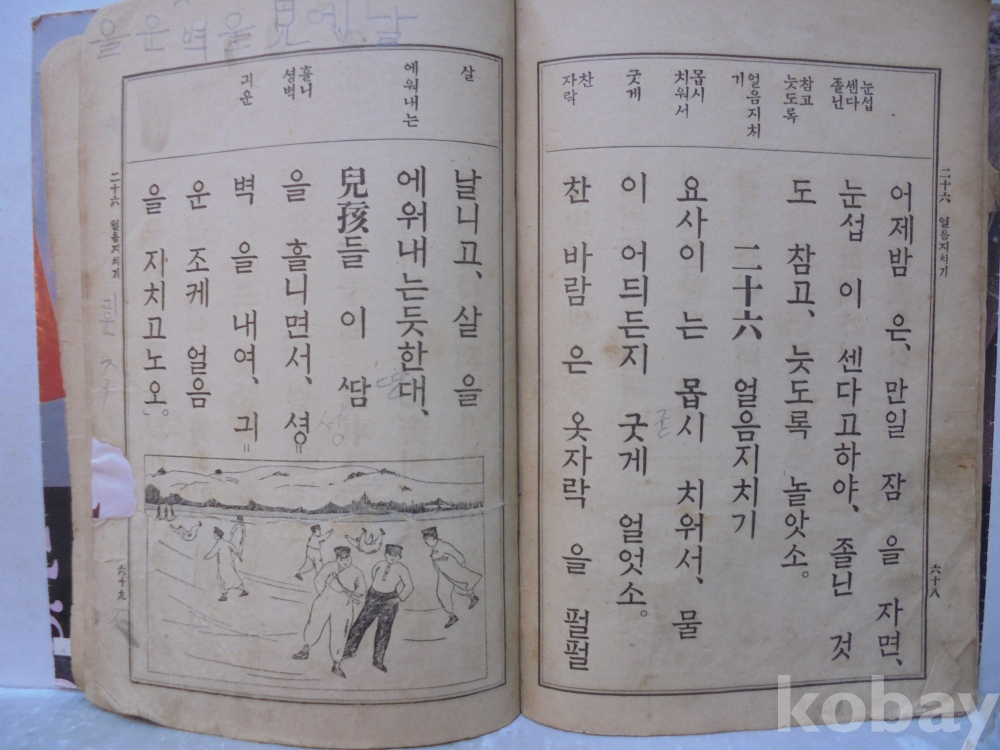 눈섭
센다
졸닌
참고
늣도록
얼음지치
기
몹시
치워서
굿게
찬
자락
어제밤은, 만일 잠을 자면,
눈섭이 센다고하야, 졸닌 것
도 참고, 늣도록 놀앗소。
二十六 얼음지치기
요사이는 몹시 치워서, 물
이 어듸든지 굿게 얼엇소。
찬 바람은 옷자락을 펄펄
二十六 얼음지치기
六十八
살
에워내는
흘니
셩벽
긔운
날니고, 살을
에워내는듯한대,
兒孩들이 땀
을 흘니면서, 셩
벽을 내여, 긔
운 조케 얼음
을 자치고노오。
二十六 얼음지치기
六十九
을운벽을兒에날
kobay